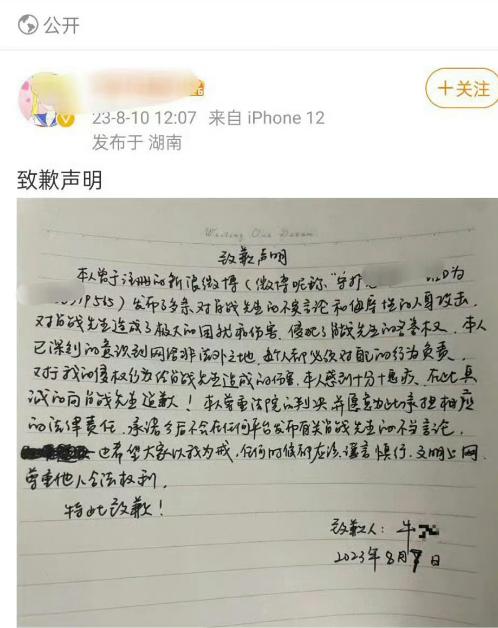 公开
+关注
23-8-10 12:07 来自 iPhone 12
发布于 湖南
致歉声明
Writing Our Dream
致歉声明
本人曾于注册的新浪微博（微博昵称“ ID为
19565）发布了多条对肖战先生的不实言论和侮辱性的人身攻击，
对肖战先生造成了极大的困扰和伤害，侵犯了肖战先生的名誉权。本人
已深刻的意识到网络非法外之地，每个人都必须对自己的行为负责，
对于我的侵权行为给肖战先生造成的伤害，本人感到十分愧疚，在此真
诚的向肖战先生道歉！本人尊重法院的判决并愿意为此承担相应
的法律责任，承诺今后不会在任何平台发布有关肖战先生的不当言论，
也希望大家以我为戒，任何时候都应该谨言慎行，文明上网
尊重他人合法权利。
特此致歉！
致歉人：牛
2023年8月 日